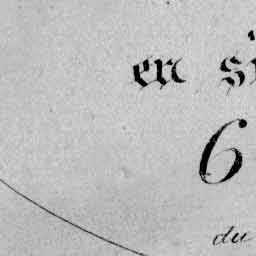 en
6
du